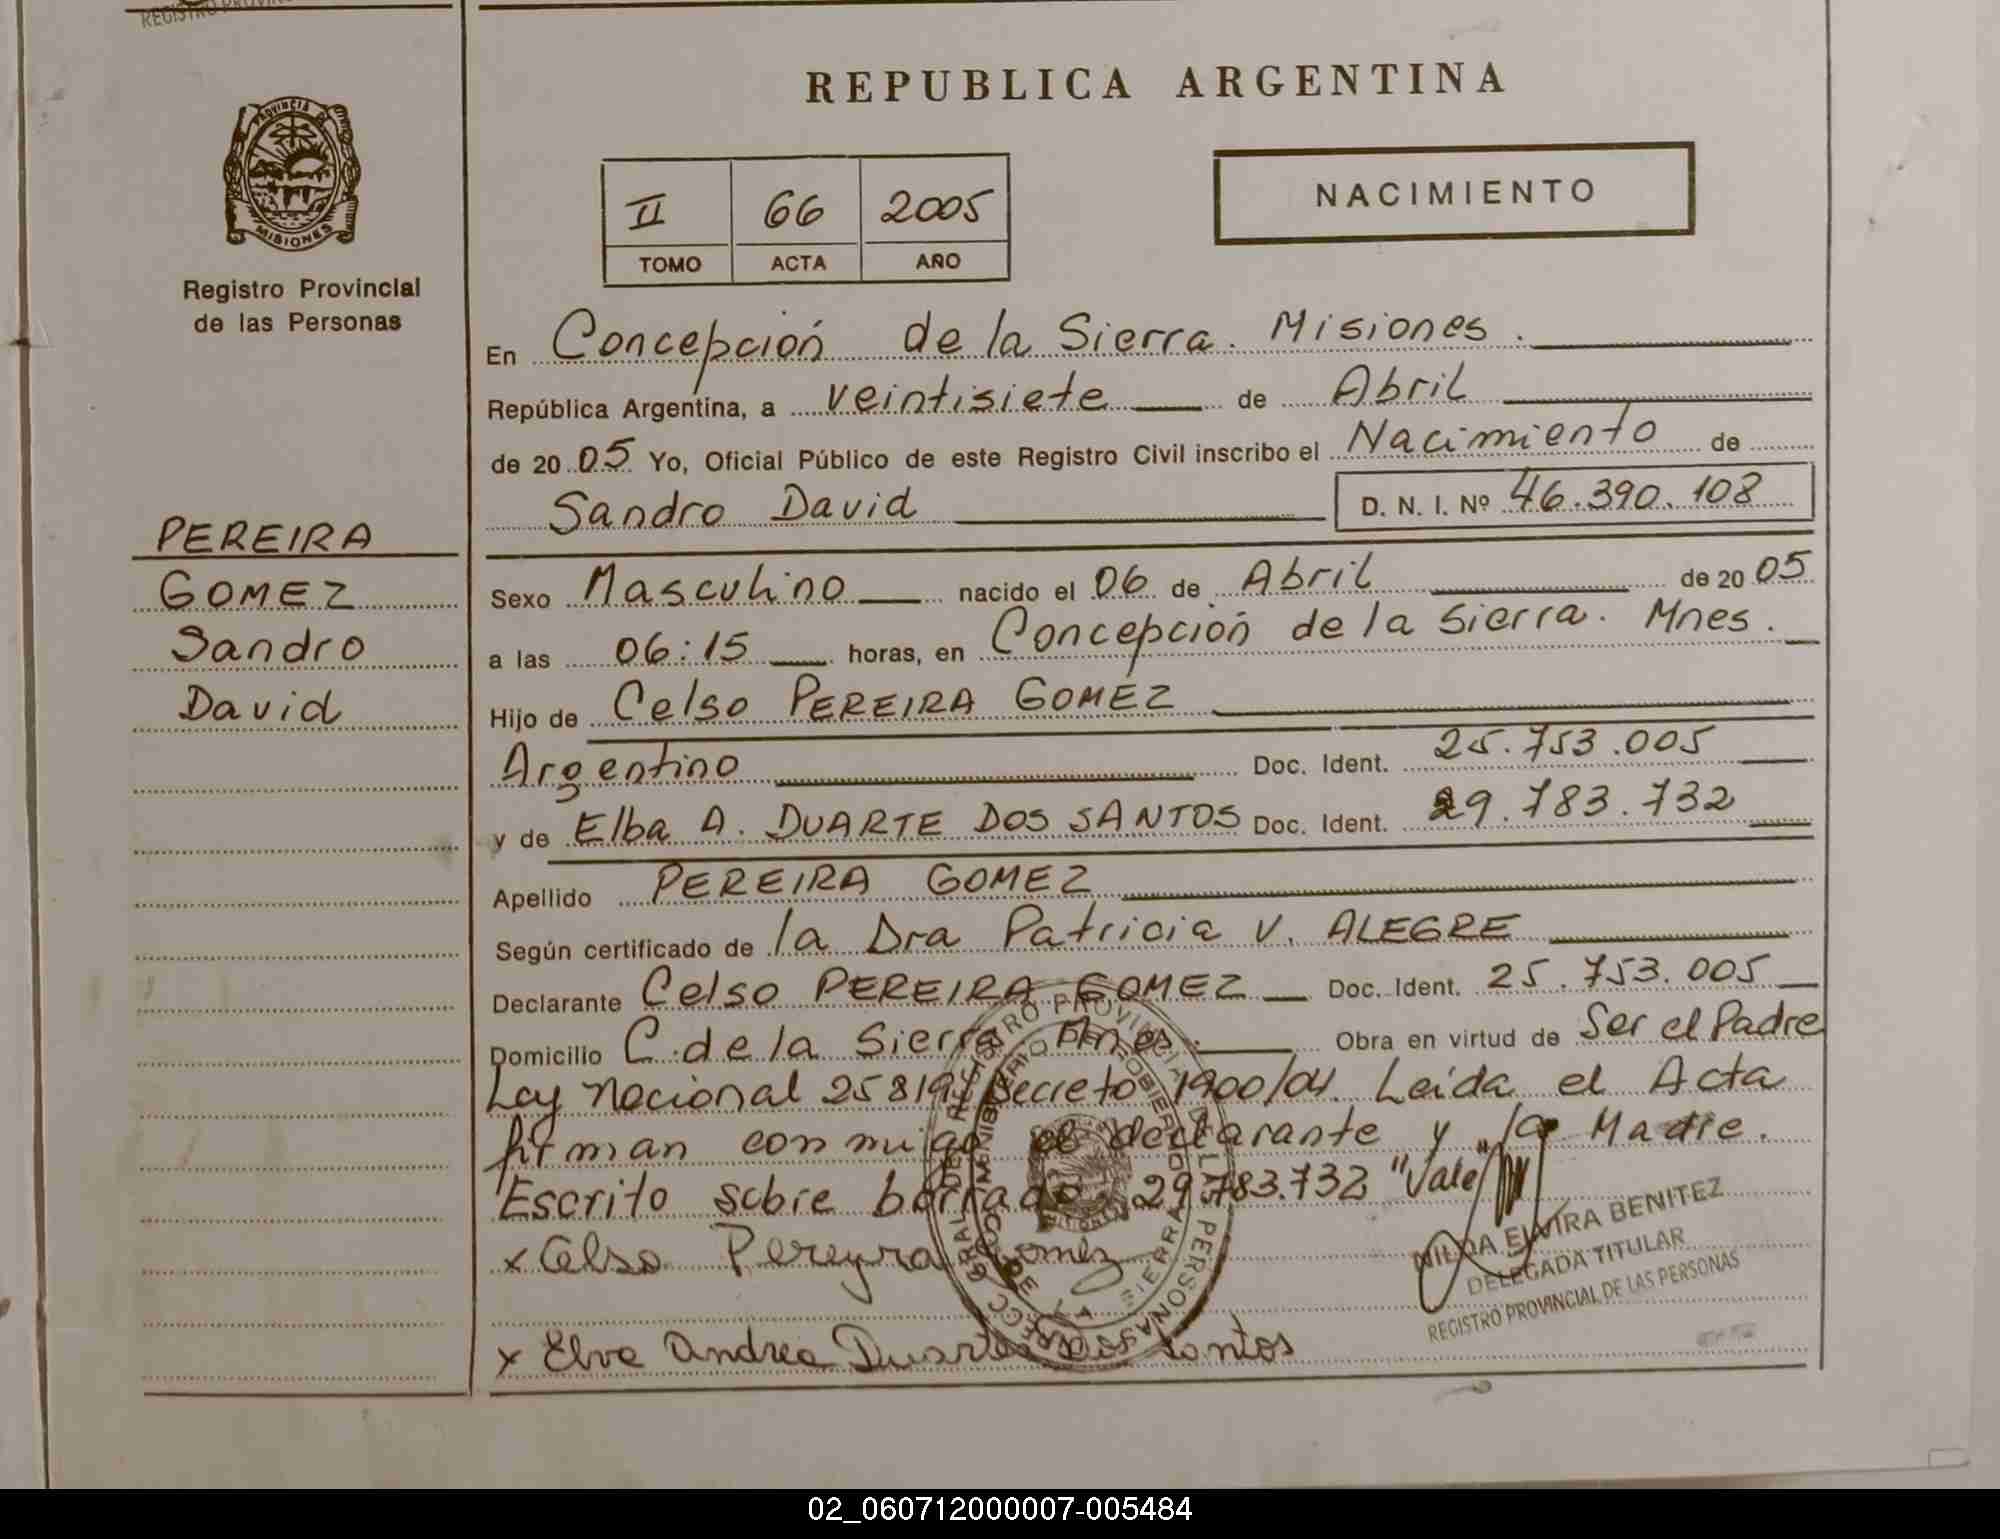 REGISTRO PROVINC
PROVINCIA DE
MISIONES
Registro Provincial
de las Personas
PEREIRA
GOMEZ
Sandro
David
REPUBLICA ARGENTINA
II 66 2005
TOMO ACTA AÑO
NACIMIENTO
En Concepción de la Sierra. Misiones.
República Argentina, a veintisiete de Abril
de 2005 Yo, Oficial Público de este Registro Civil inscribo el Nacimiento de
Sandro David D. N. I. Nº 46.390.108
Sexo Masculino nacido el 06 de Abril de 2005
a las 06:15 horas, en Concepción de la Sierra. Mnes.
Hijo de Celso PEREIRA GOMEZ
Argentino Doc. Ident. 25.753.005
y de Elba A. DUARTE DOS SANTOS Doc. Ident. 29.783.732
Apellido PEREIRA GOMEZ
Según certificado de la Dra Patricia V. ALEGRE
Declarante Celso PEREIRA GOMEZ Doc. Ident. 25.753.005
Domicilio C. de la Sierra Mnes. Obra en virtud de Ser el Padre
Ley Nacional 25819/ Decreto 1900/04. Leida el Acta
firman conmigo el declarante y la Madre.
"Escrito sobre borrado. 29.783.732 "Vale"
x Celso Pereyra Gomez
x Elva Andrea Duarte Dos Santos
NILDA ELVIRA BENITEZ
DELEGADA TITULAR
REGISTRO PROVINCIAL DE LAS PERSONAS
02_060712000007-005484